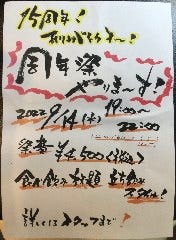 15周年!
ありがとうネ〜!
周年祭
やりま〜す!
2022 9/14(水) 19:00〜
22:00
会費 ¥4,500(税込)
食べ飲み放題
詳しくはスタッフまで!